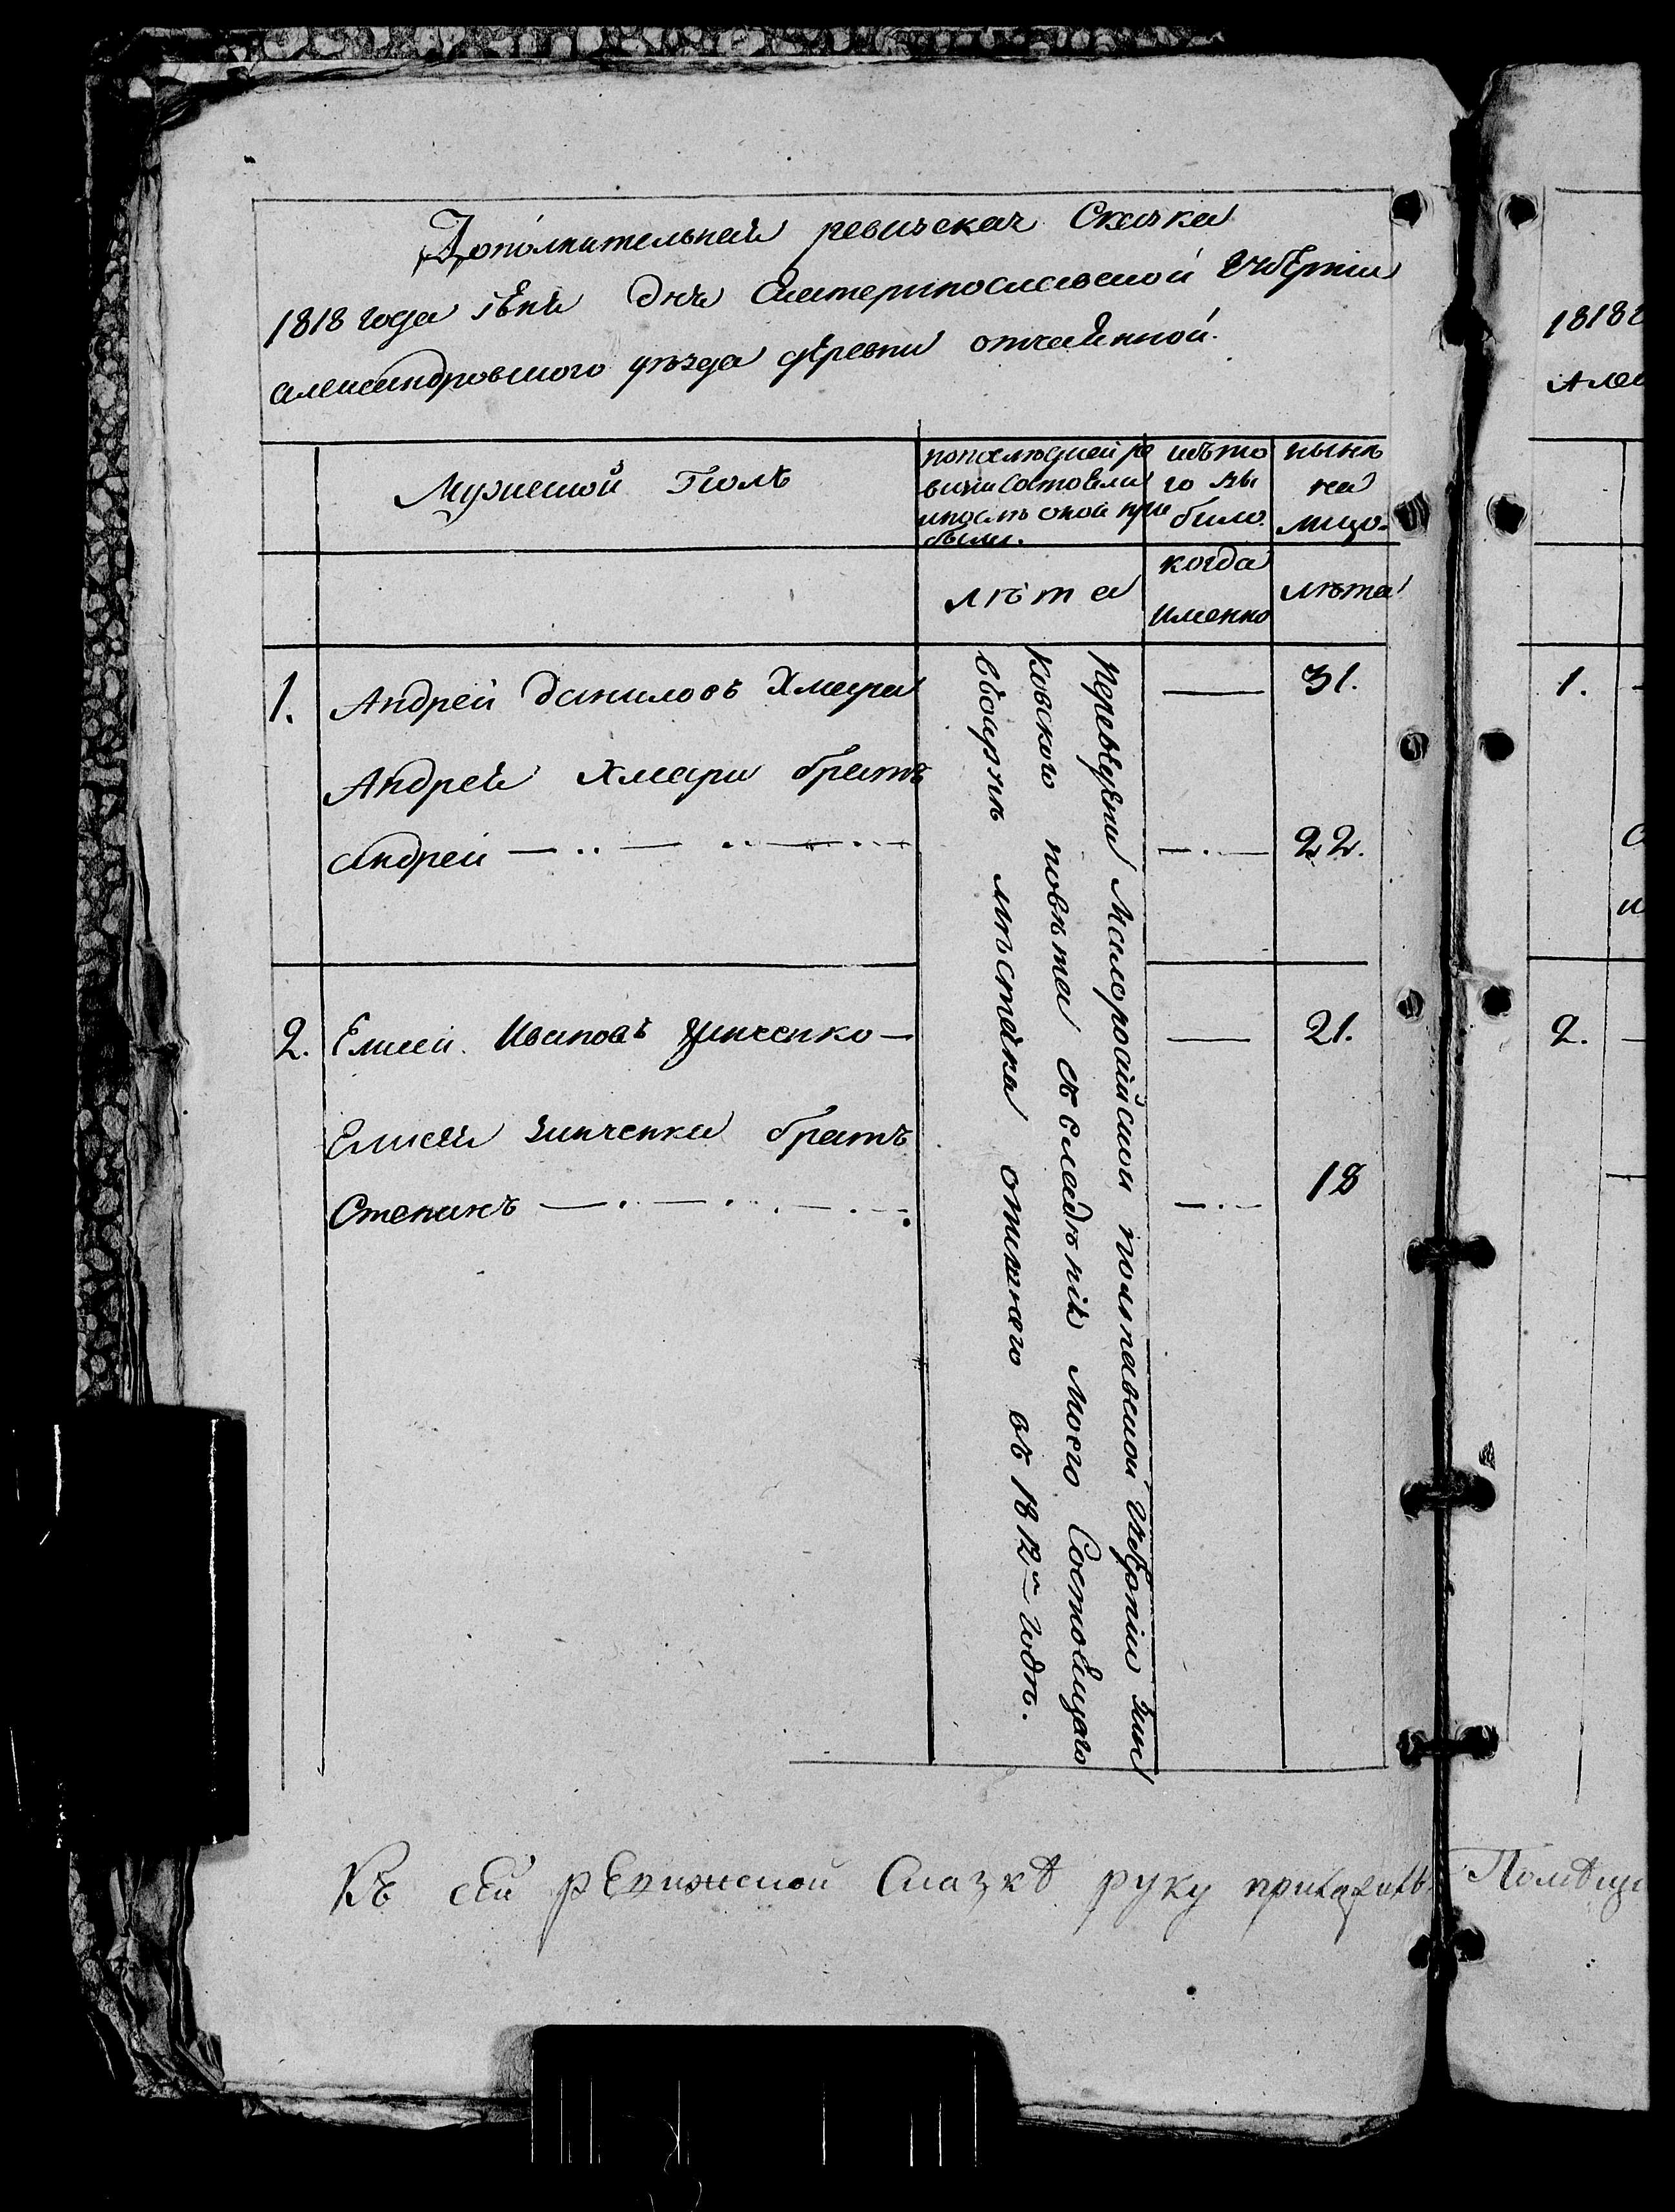 Дополнительная ревизская Сказка
1818 года дня Екатеринославской Губернии
александровского уезда деревни отчаянной.
Мужеской Полъ
по последней ре
визии Состояли
и после оной при
были.
изъ то
го вы
было.
ныне
на
лицо.
лѣта
когда
именно
лѣта
1. Андрей даниловъ Хмара — 31.
Андрея Хмары братъ
андрей — 22.
2. Елисей Ивановъ Зинченко — 21.
Елисея Зинченка братъ
Степанъ — 18
Переведены Малоросийской полтавской Губернии Зин
ковского повѣта въ владѣние Моего Состоящаго
мѣстечка опишнего въ 1812м годѣ.
Къ сей ревижской Сказкѣ руку приложилъ Помѣщи
1818
Алек
1.
2.